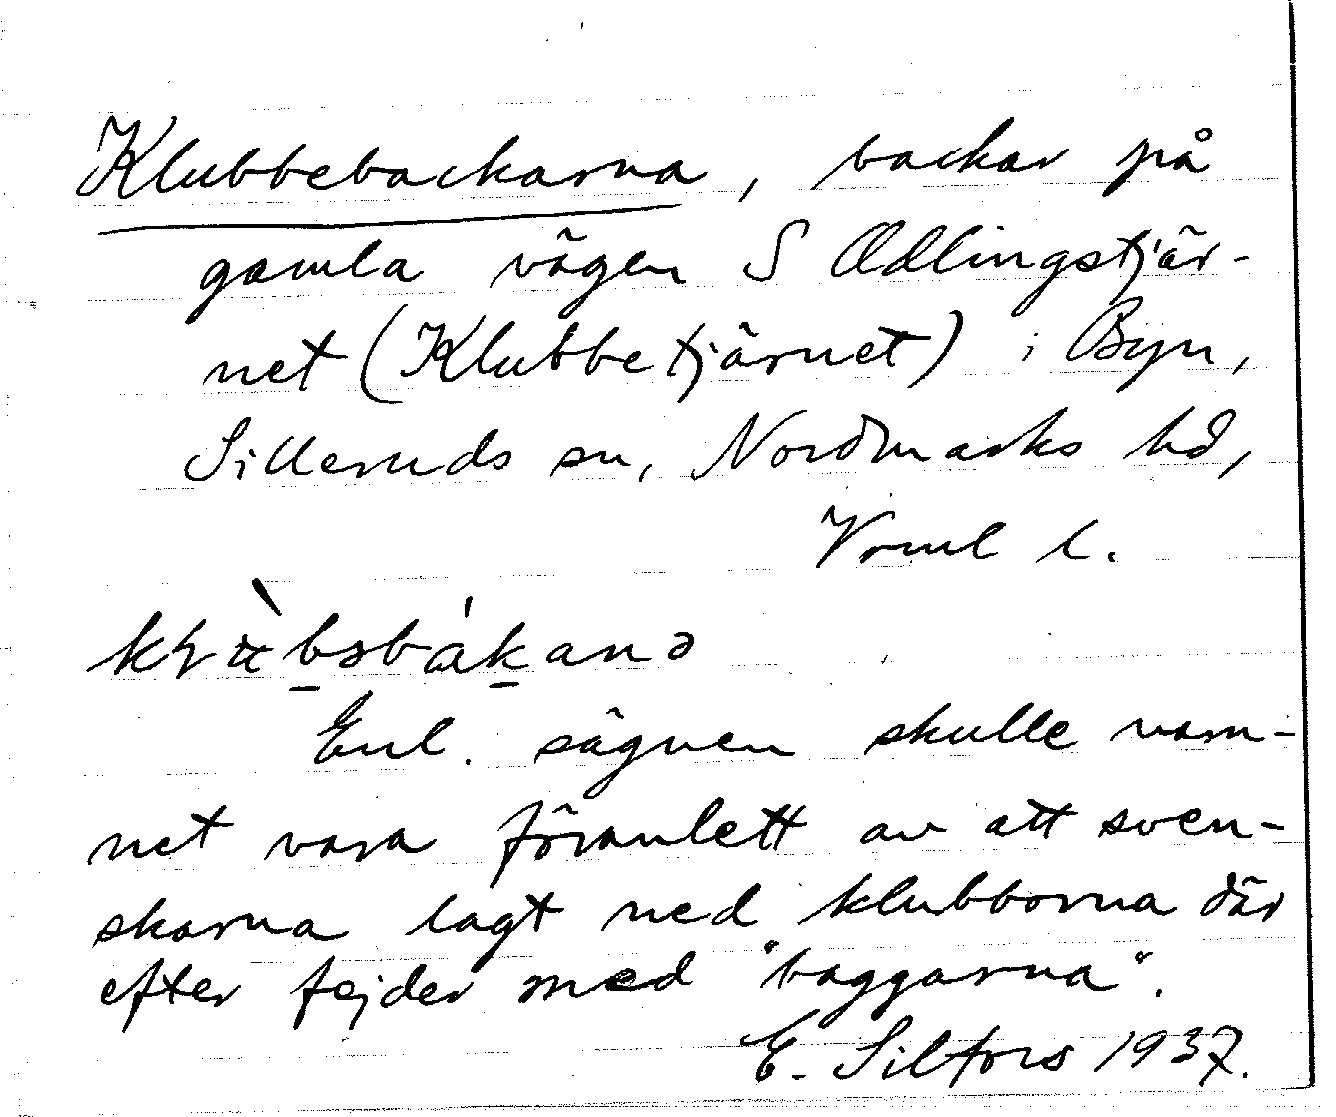 Klubbebackarna, backar på
gamla vägen S Ødlingstjär-
net (Klubbetjärnet) i Byn,
Silleruds sn, Nordmarks hd,
Vrml l.
Enl. sägnen skulle nam-
net vara föranlett av att sven-
skarna lagt ned klubborna där
efter fejder med "baggarna".
E. Silfors 1937.